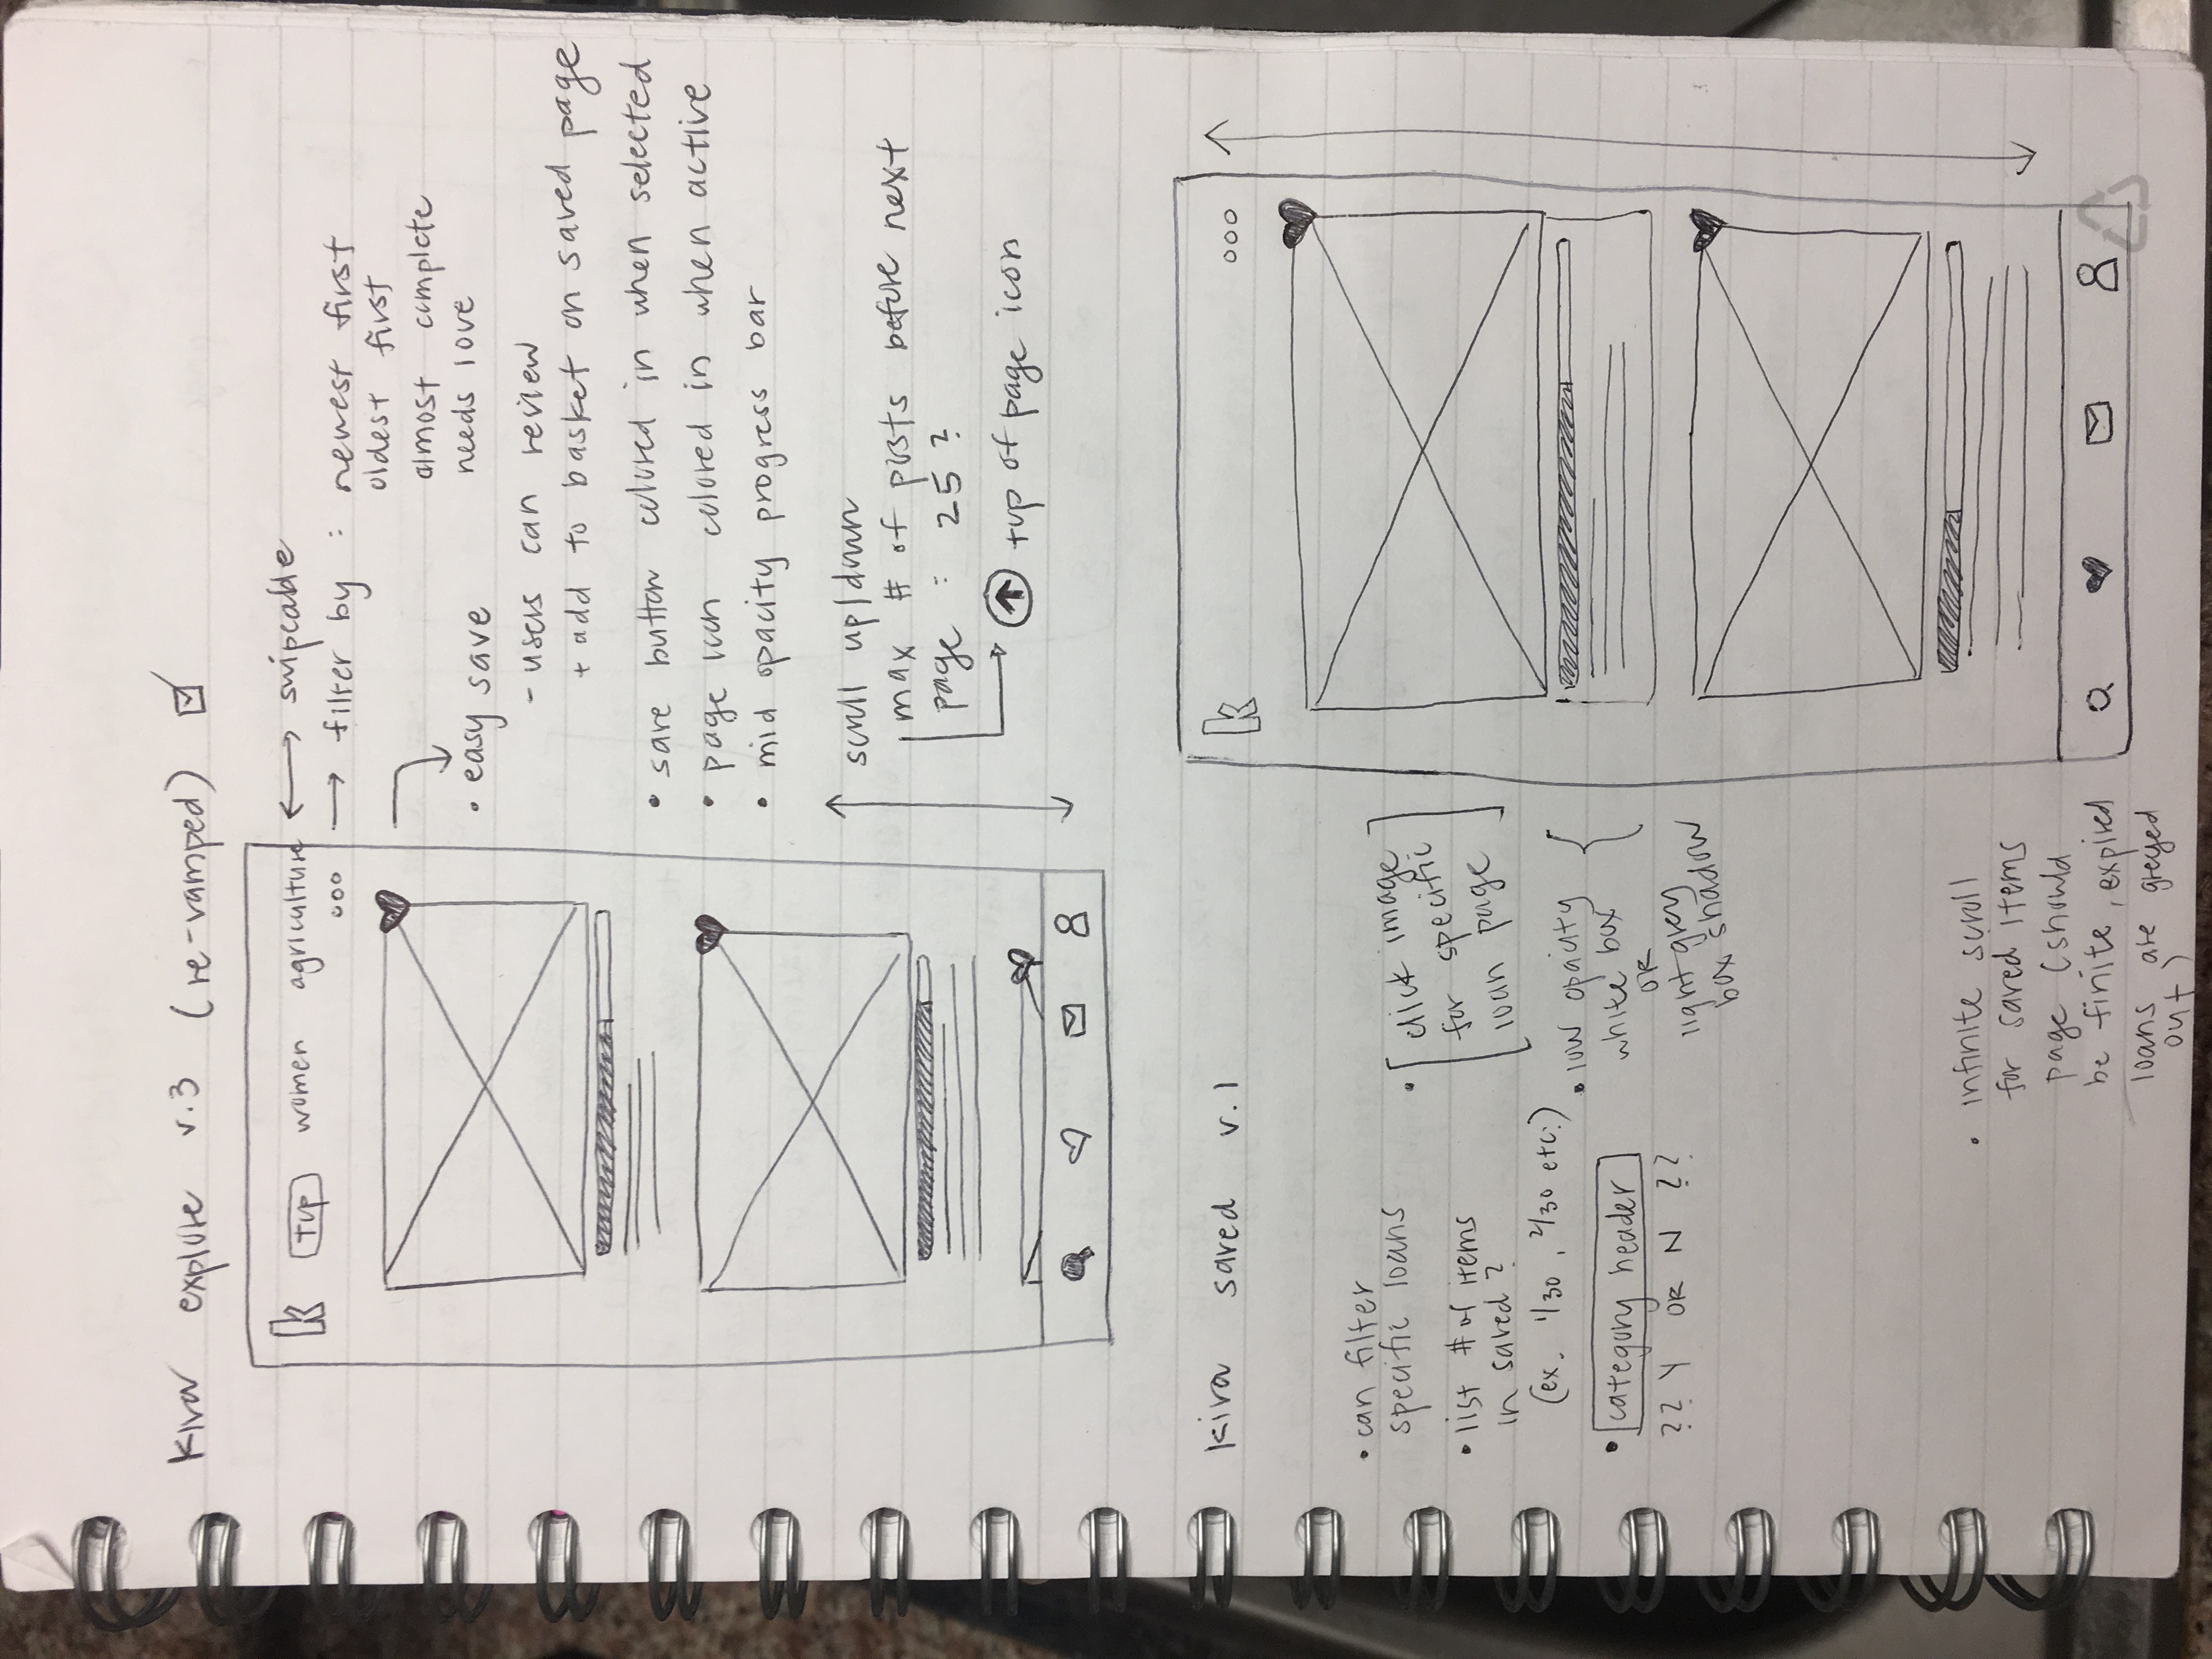 kiva explore v.3 (re-vamped)
k top women agriculture
swipeable
filter by : newest first
oldest first
almost complete
needs love
• easy save
- users can review
+ add to basket on saved page
• save button colored in when selected
• page icon colored in when active
• mid opacity progress bar
scroll up/down
max # of posts before next
page : 25 ?
top of page icon
kiva saved v.1
k
• can filter
specific loans
• list # of items
in saved ?
(ex. 1/30 , 2/30 etc.)
• category header
?? Y OR N ??
• [click image
for specific
loan page]
• low opacity
white box
OR
light grey
box shadow
• infinite scroll
for saved items
page (should
be finite, expired
loans are greyed
out)